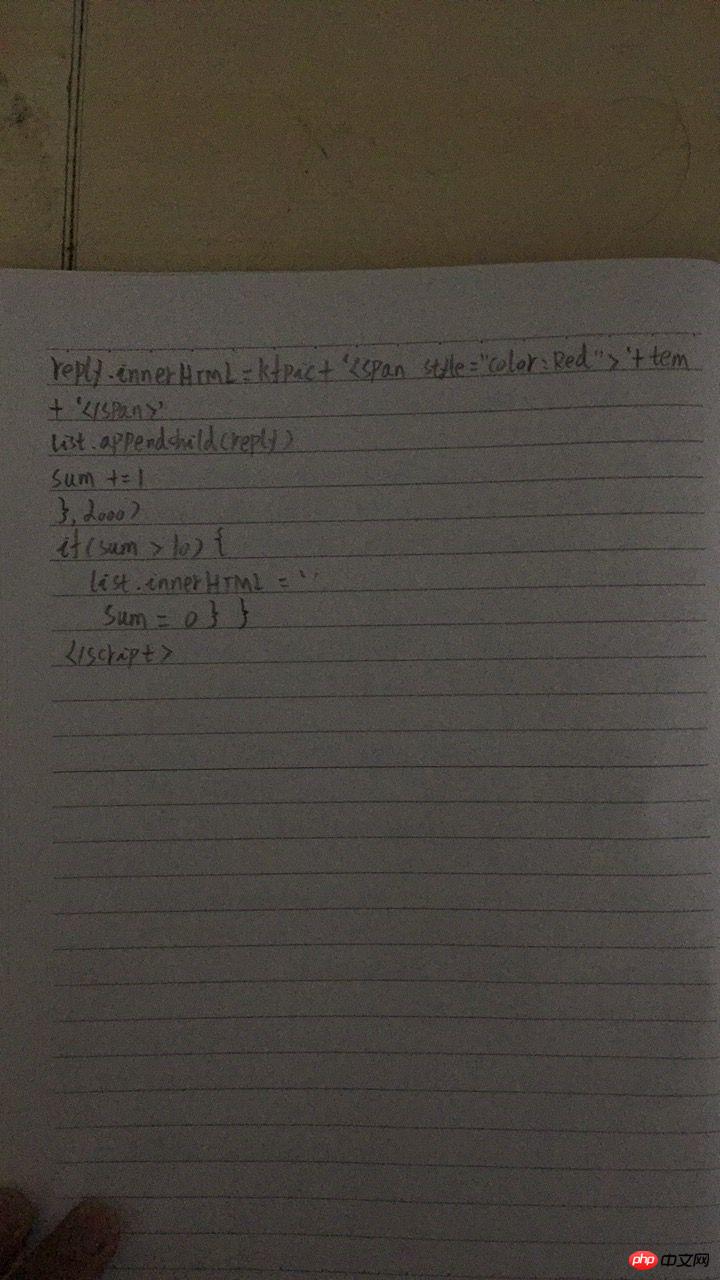 reply.innerHTML=kfpic+'<span style="color:Red">'+tem
+'</span>'
list.appendchild(reply)
sum +=1
},2000)
if(sum > 10) {
list.innerHTML = ''
Sum = 0 } }
</script>
php 中文网